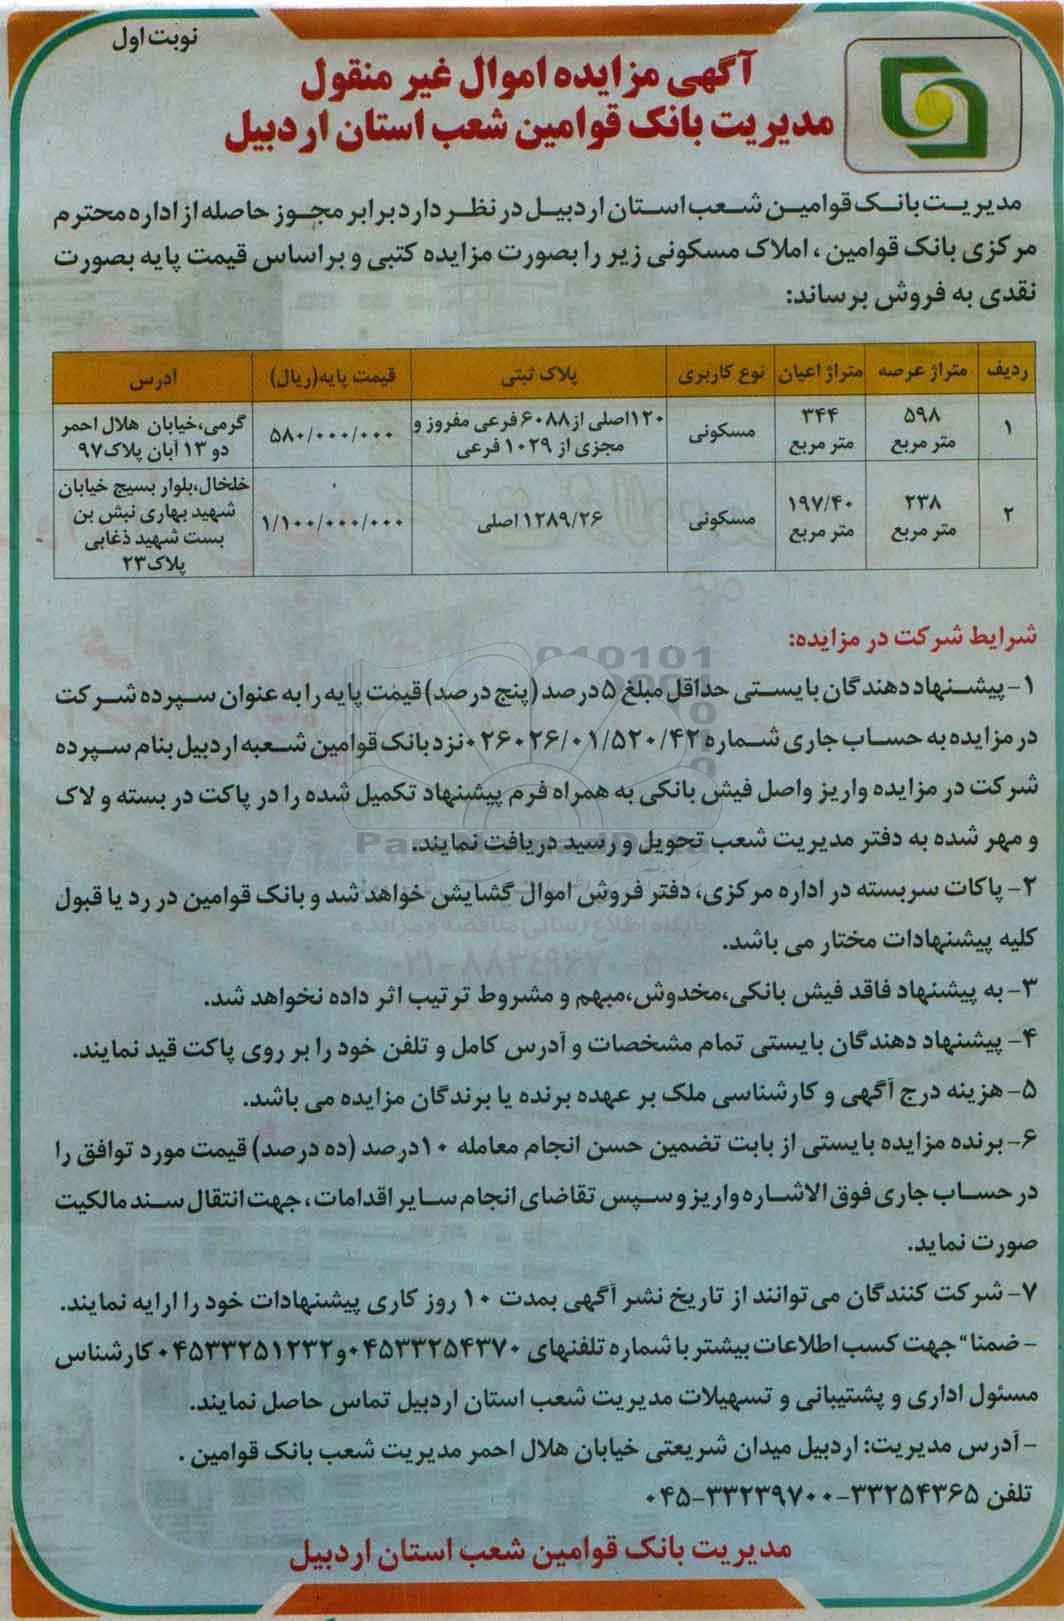 نوبت اول
آگهی مزایده اموال غیر منقول
مدیریت بانک قوامین شعب استان اردبیل
مدیریت بانک قوامین شعب استان اردبیل در نظر دارد برابر مجوز حاصله از اداره محترم
مرکزی بانک قوامین ، املاک مسکونی زیر را بصورت مزایده کتبی و براساس قیمت پایه بصورت
نقدی به فروش برساند:
ردیف متراژ عرصه متراژ اعیان نوع کاربری پلاک ثبتی قیمت پایه(ریال) آدرس
۱ ۵۹۸ متر مربع ۳۴۴ متر مربع مسکونی ۱۲۰اصلی از۶۰۸۸فرعی مفروز و مجزی از ۱۰۲۹ فرعی ۵۸۰/۰۰۰/۰۰۰ گرمی،خیابان هلال احمر دو ۱۳ آبان پلاک۹۷
۲ ۲۳۸ متر مربع ۱۹۷/۴۰ متر مربع مسکونی ۱۲۸۹/۲۶ اصلی ۱/۱۰۰/۰۰۰/۰۰۰ خلخال،بلوار بسیج خیابان شهید بهاری نبش بن بست شهید ذغابی پلاک۲۳
شرایط شرکت در مزایده:
۱- پیشنهاد دهندگان بایستی حداقل مبلغ ۵درصد (پنج درصد) قیمت پایه را به عنوان سپرده شرکت
در مزایده به حساب جاری شماره ۰۲۶۰۲۶/۰۱/۵۲۰/۴۲ نزد بانک قوامین شعبه اردبیل بنام سپرده
شرکت در مزایده واریز واصل فیش بانکی به همراه فرم پیشنهاد تکمیل شده را در پاکت در بسته و لاک
و مهر شده به دفتر مدیریت شعب تحویل و رسید دریافت نمایند.
۲- پاکات سربسته در اداره مرکزی، دفتر فروش اموال گشایش خواهد شد و بانک قوامین در رد یا قبول
کلیه پیشنهادات مختار می باشد.
۳- به پیشنهاد فاقد فیش بانکی،مخدوش،مبهم و مشروط ترتیب اثر داده نخواهد شد.
۴- پیشنهاد دهندگان بایستی تمام مشخصات و آدرس کامل و تلفن خود را بر روی پاکت قید نمایند.
۵- هزینه درج آگهی و کارشناسی ملک بر عهده برنده یا برندگان مزایده می باشد.
۶- برنده مزایده بایستی از بابت تضمین حسن انجام معامله ۱۰درصد (ده درصد) قیمت مورد توافق را
در حساب جاری فوق الاشاره واریز و سپس تقاضای انجام سایر اقدامات ، جهت انتقال سند مالکیت
صورت نماید.
۷- شرکت کنندگان می توانند از تاریخ نشر آگهی بمدت ۱۰ روز کاری پیشنهادات خود را ارایه نمایند.
- ضمنا" جهت کسب اطلاعات بیشتر با شماره تلفنهای ۰۴۵۳۳۲۵۴۳۷۰ و۰۴۵۳۳۲۵۱۲۳۲ کارشناس
مسئول اداری و پشتیبانی و تسهیلات مدیریت شعب استان اردبیل تماس حاصل نمایند.
- آدرس مدیریت: اردبیل میدان شریعتی خیابان هلال احمر مدیریت شعب بانک قوامین .
تلفن ۳۳۲۵۴۳۶۵-۳۳۲۳۹۷۰۰-۰۴۵
مدیریت بانک قوامین شعب استان اردبیل
پایگاه اطلاع رسانی مناقصه و مزایده
۰۲۱-۸۸۳۴۹۶۷۰-۵